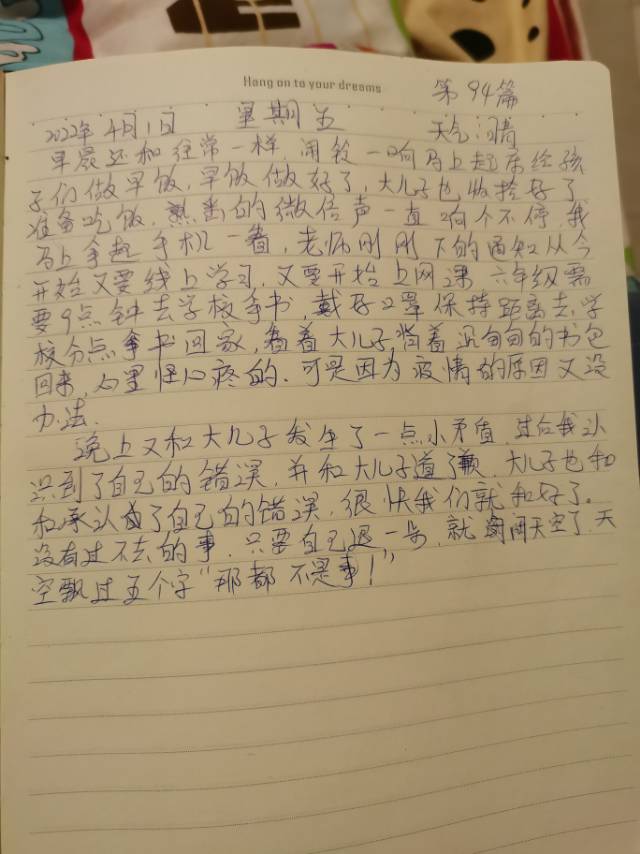 Hang on to your dreams
第94篇
2022年4月1日 星期五 天气:晴
早晨还和往常一样,闹铃一响马上起床给孩
子们做早饭,早饭做好了,大儿子也收拾好了
准备吃饭.熟悉的微信声一直响个不停,我
马上拿起手机一看,老师刚刚下的通知从今
开始又要线上学习,又要开始上网课 六年级需
要9点钟去学校拿书,戴好口罩保持距离去学
校分点拿书回家,看着大儿子,背着沉甸甸的书包
回来,心里怪心疼的.可是因为疫情的原因又没
办法.
晚上又和大儿子发生了一点小矛盾,过后我认
识到了自己的错误,并和大儿子道了歉,大儿子也和
和承认了自己的错误,很快我们就和好了。
没有过不去的事,只要自己退一步,就海阔天空了,天
空飘过五个字"那都不是事!"